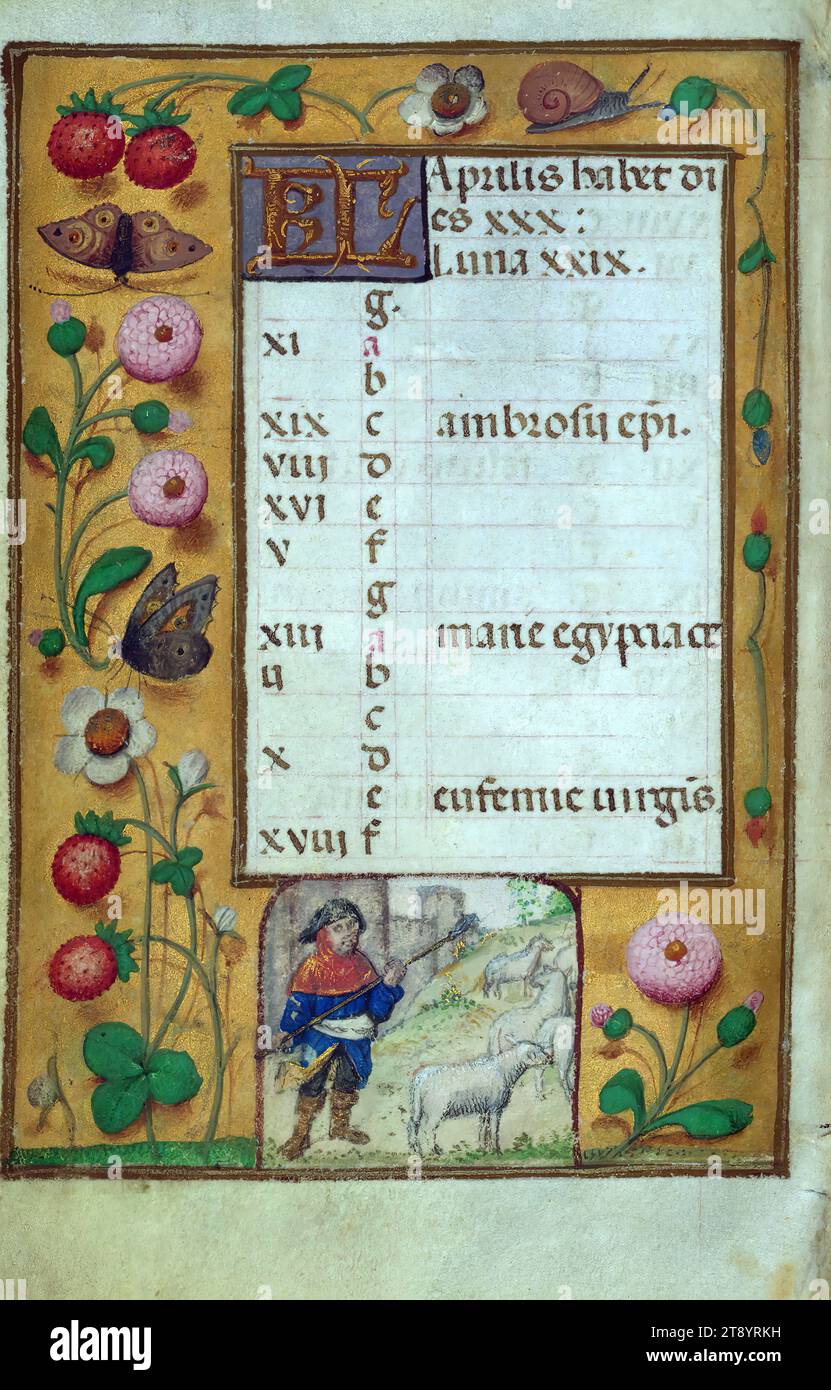 KL Aprilis habet di
es xxx:
Luna xxix.
g.
xi a
b
xix c ambrosij epi.
viii d
xvi e
v f
g
xiii a marie egypciace
ii b
c
x d
e eufemie uirgis.
xviii f
alamy
Image ID: 2T8YRKH
www.alamy.com